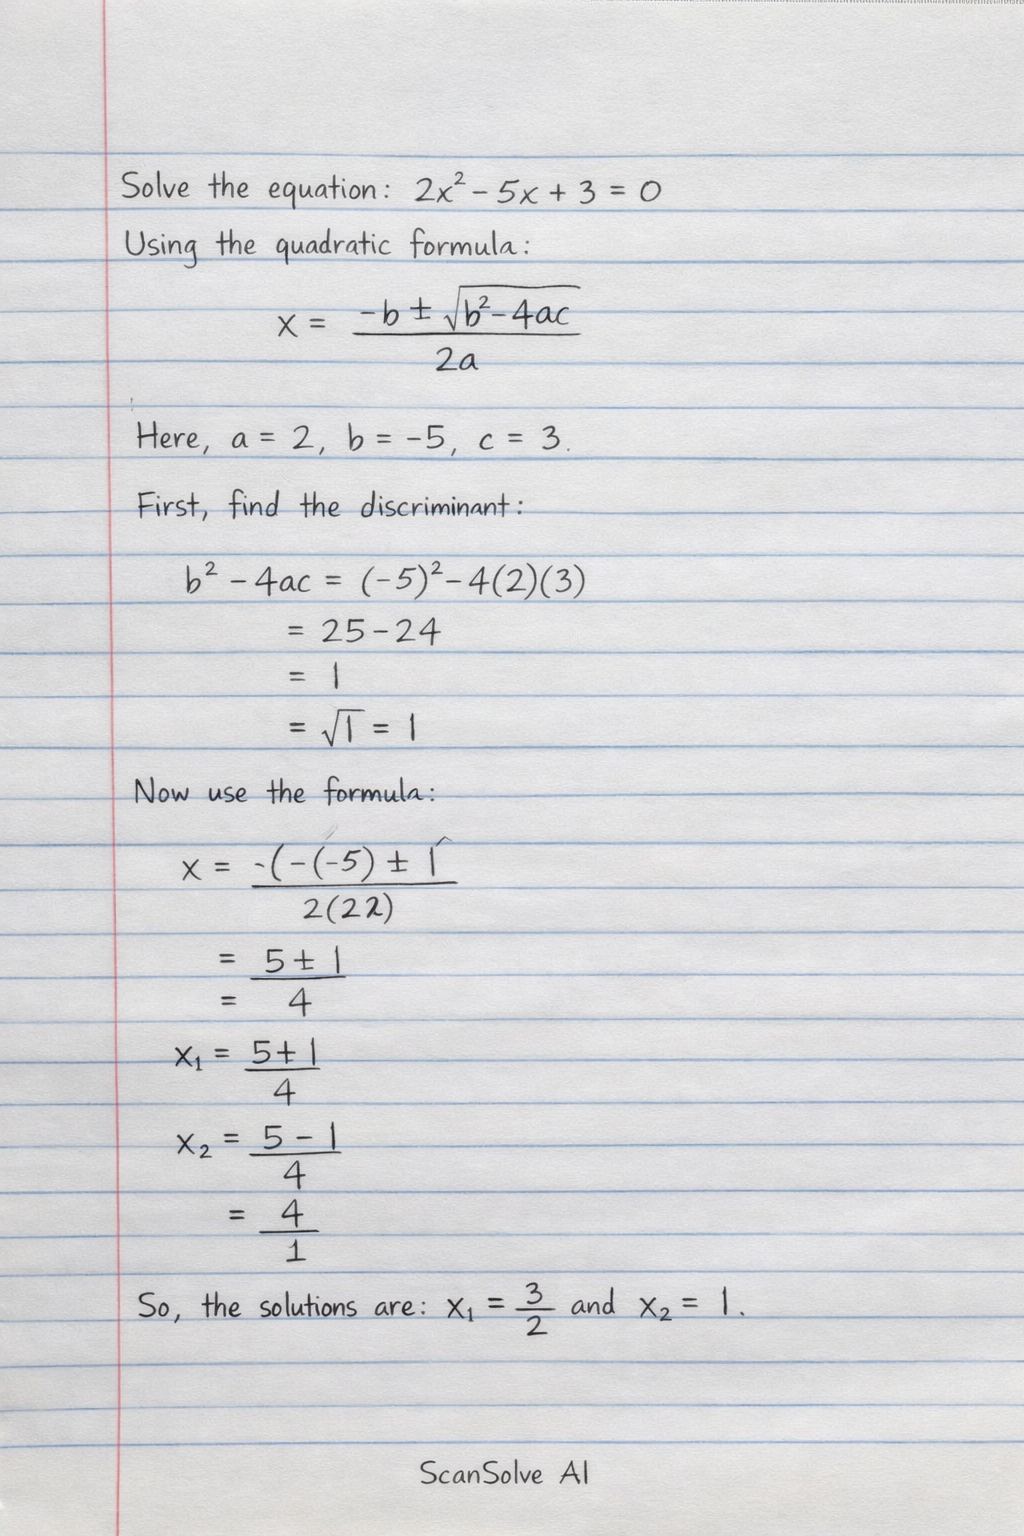 Solve the equation: 2x² - 5x + 3 = 0
Using the quadratic formula:
x = -b ± √b² - 4ac
2a
Here, a = 2, b = -5, c = 3.
First, find the discriminant:
b² - 4ac = (-5)² - 4(2)(3)
= 25 - 24
= 1
= √1 = 1
Now use the formula:
x = -(-(-5) ± 1
2(22)
= 5 ± 1
= 4
x₁ = 5 + 1
4
x₂ = 5 - 1
4
= 4
1
So, the solutions are: x₁ = 3/2 and x₂ = 1.
ScanSolve AI